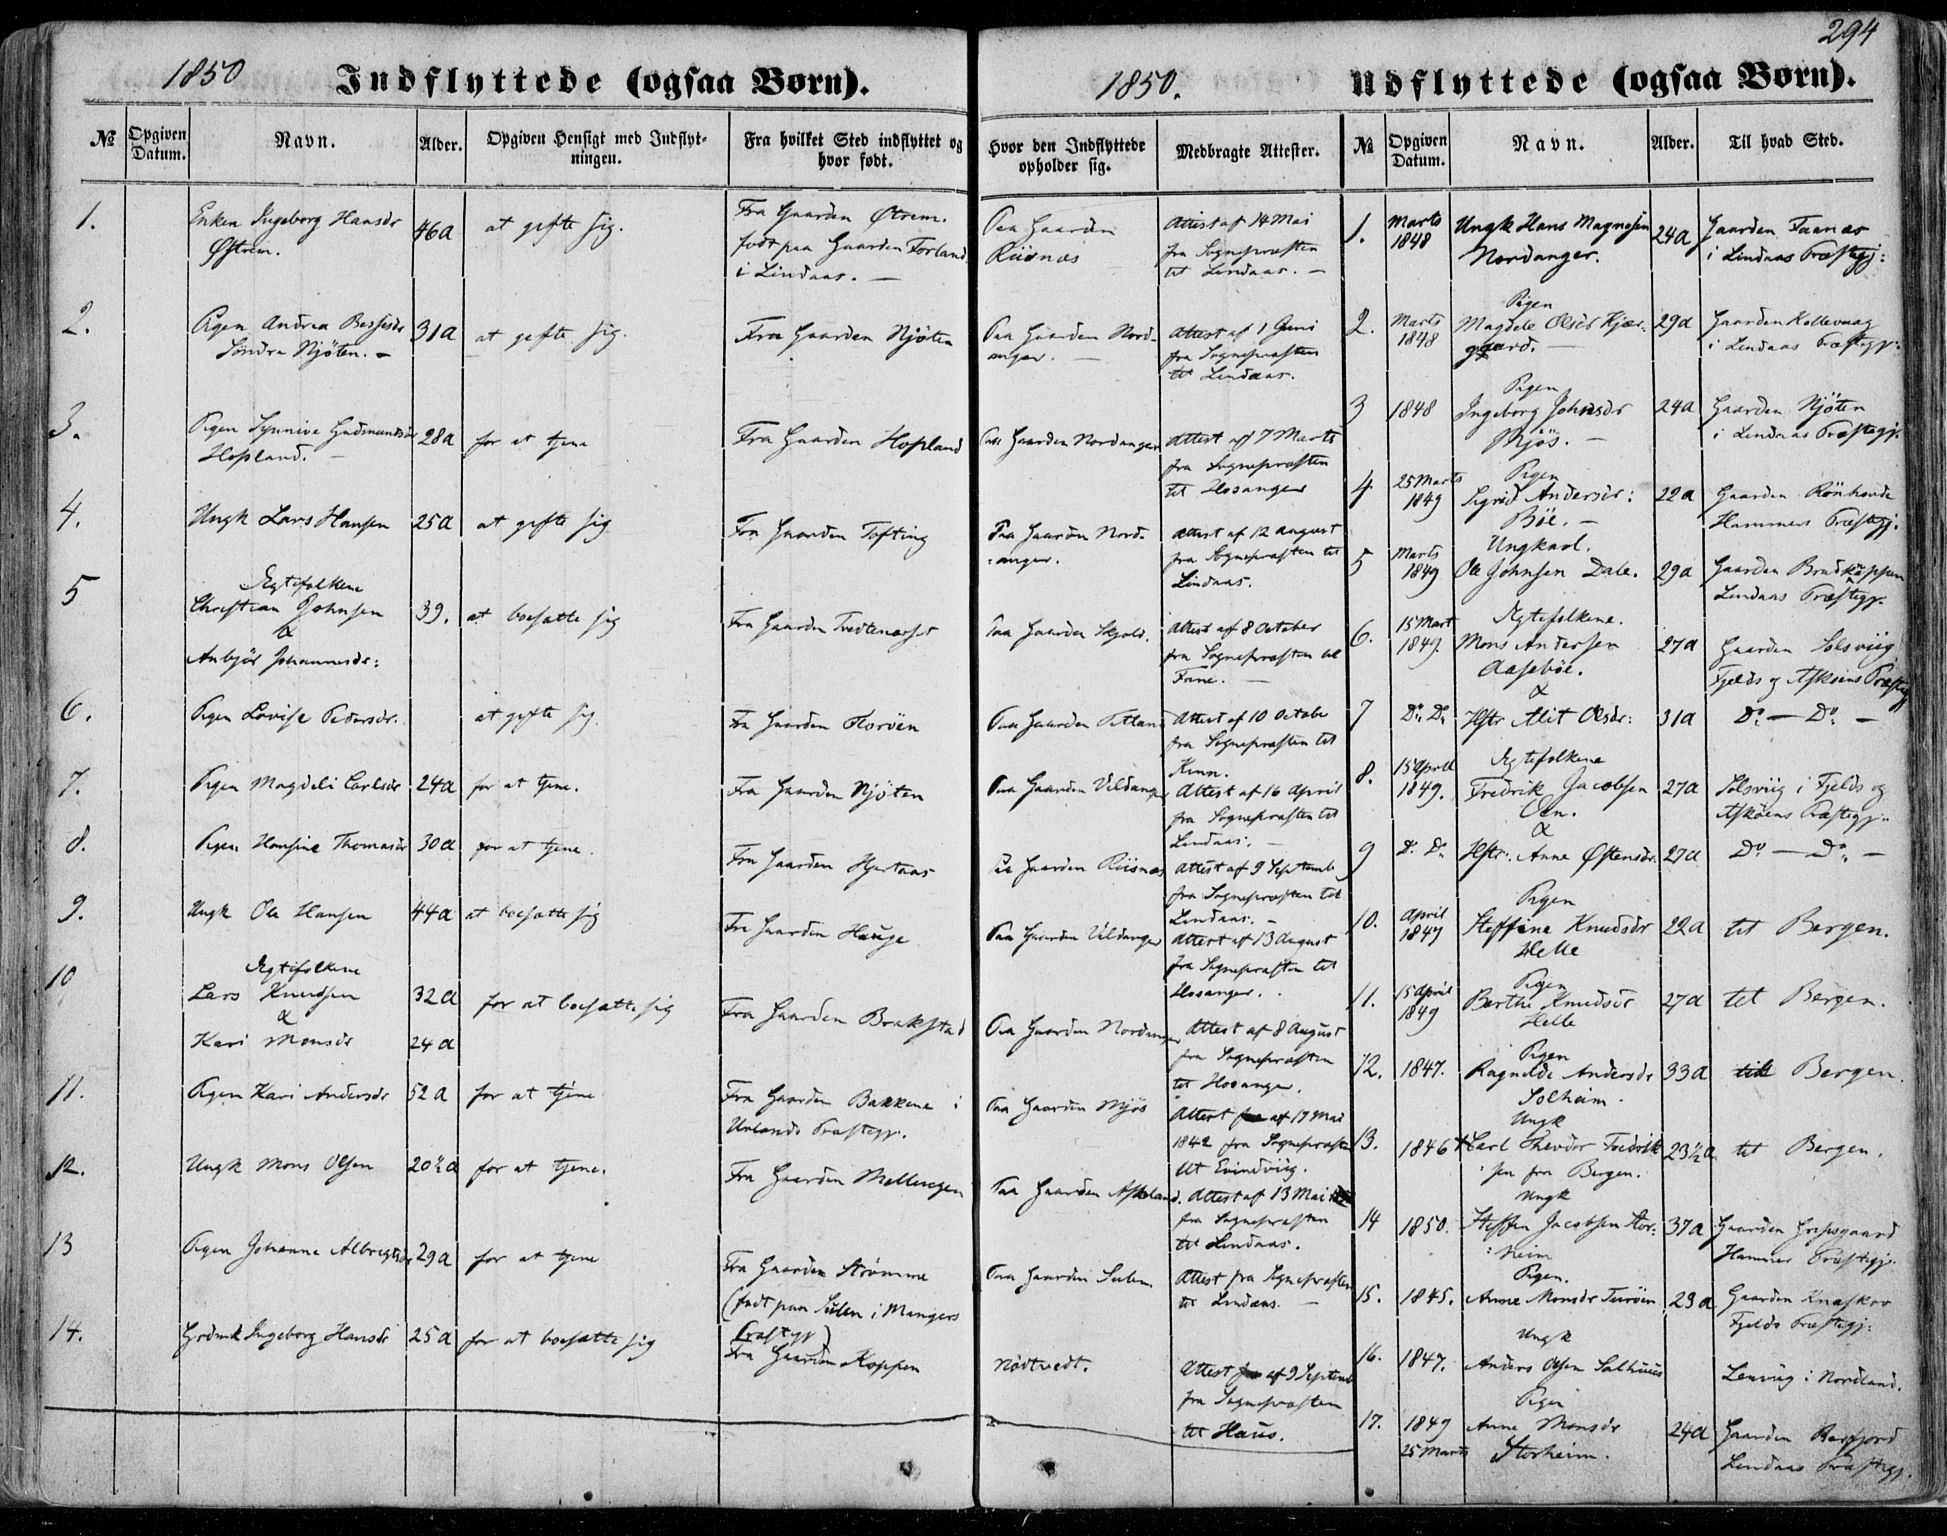 294
1850 Indflyttede (ogsaa Børn).
№ Opgiven Datum. Navn. Alder. Opgiven Hensigt med Indflytningen. Fra hvilket Sted indflyttet og hvor født.
Hvor den Indflyttede opholder sig. Medbragte Attester.
1. Enken Ingeborg Hansdr 46a at gifte sig. Fra Gaarden Østrem. Paa Gaarden Attest af 14 Mai
Østrem. født paa Gaarden Forland Riisnæs fra Sognepræsten
i Lindaas. — til Lindaas. —
2. Pigen Andrea 31a at gifte sig. Fra Gaarden Njøten Paa Gaarden Nord- Attest af 1 Juni
Søndre Njøten. — anger. — fra Sognepræsten
til Lindaas.
3. Pigen Synnive Gudmundsdr 28a for at tjene Fra Gaarden Hopland Paa Gaarden Nordanger Attest af 7 Marts
Hopland. — fra Sognepræsten
til Hosanger
4. Ungk Lars Hansen 25a at gifte sig Fra Gaarden Tofting Paa Gaarden Nord- Attest af 12 August
anger. fra Sognepræsten til
Lindaas.
5 Ægtefolkene
Christian Johnsen 39. at bosætte sig Fra Gaarden Paa Gaarden Skjold. Attest af 8 October
& fra Sognepræsten til
Anbjør Johannesdr: Fane. —
6. Pigen Lovise Pedersdr. at gifte sig. Fra Gaarden Florøen Paa Gaarden Attest af 10 Octobr
fra Sognepræsten til
Kinn.
7. Pigen Magdeli Carlsdr 24a for at tjene. Fra Gaarden Njøten Paa Gaarden Vildanger Attest af 16 April
fra Sognepræsten til
Lindaas.
8. Pigen Hansine Thomasdr 30a for at tjene. Fra Gaarden Hjertaas Gaarden Riisnæs Attest af 9 Septemb
fra Sognepræsten til
Lindaas. —
9. Ungk Ole Hansen 44a at bosætte sig Fra Gaarden Hauge Paa Gaarden Vildanger Attest af 13 August
fra Sognepræsten til
Hosanger.
10 Ægtefolkene
Lars Knudsen 32a for at bosætte sig Fra Gaarden Brakstad Paa Gaarden Nordanger Attest af 8 August
& fra Sognepræsten
Kari Monsdr 24a til Hosanger.
11. Pigen Kari Andersdr 52a for at tjene Fra Gaarden Bakkene i Paa Gaarden Mjøs Attest af 17 Mai
Urlands Præstegj. 1842 fra Sognepræsten
til Evindviig.
12. Ungk Mons Olsen 20½a for at tjene. Fra Gaarden Paa Gaarden Askeland. Attest af 13 Mai
fra Sognepræsten
til Lindaas.
13 Pigen Johanne Albregtsdr 29a for at tjene Fra Gaarden Strømme Paa Gaarden Sulen Attest fra Sognepræsten
(født paa Sulen i Mangers til Lindaas. —
Præstgj)
14. Ingeborg Hansdr 25a for at bosætte sig Fra Gaarden Koppen Nødtvedt. Attest af 9 Septemb
fra Sognepræsten
til Haus.
1850. Udflyttede (ogsaa Børn).
№ Opgiven Datum. Navn. Alder. Til hvad Sted.
1. Marts Ungk Hans Magnesen 24a Gaarden Faanæs
1848 Nordanger. i Lindaas Præstegj:
2. Marts Pigen
1848 Magdele Olsdr Kjær- 29a Gaarden Kollevaag
gaard. — i Lindaas Præstegj:
3 1848 Pigen
Ingeborg Johnsdr 24a Gaarden Njøten
Mjøs. — i Lindaas Præstegj.
4 25 Marts Pigen
1849 Sigrid Andersdr: 22a Gaarden
Bøe. — Hammers Præstegj.
5 Marts Ungkarl.
1849 Ole Johnsen Dale. 29a Gaarden
Lindaas Præstegj.
6. 15 Mart Ægtefolkene.
1849. Mons Andersen 27a Gaarden Solsviig
Aasebøe. Fjelds og Askøens Præstegj
&
7 Do Do Hstr Alit Olsdr: 31a Do — Do —
8. 15 April Ægtefolkene
1849. Fredrik Jacobsen 27a Solsviig i Fjelds og
Øen. Askøens Præstegj.
&
9 Do Do Hstr: Anne Østensdr. 27a Do — Do —
10. April Pigen
1849 Steffine Knudsdr 22a til Bergen.
Helle
11. 15 April Pigen
1849 Berthe Knudsdr 27a til Bergen.
Helle
12. 1847. Pigen
Ragnilde Andersdr 33a til Bergen.
Solheim.
13. 1846 Ungk
Carl Thevdor Fredrik 23½a til Bergen.
sen fra Bergen.
14 1850. Ungk
Steffen Jacobsen Stor- 37a Gaarden
heim Hammer Præstegj.
15. 1845. Pigen.
Anne Monsdr Turøen 23a Gaarden Knaskov
Fjelds Præstegj:
16. 1847. Ungk
Anders Olsen Salhuus Lenvig i Nordland.
17. 1849 Pigen
25 Marts Anne Monsdr 24a Gaarden
Storheim. Lindaas Præstegj.